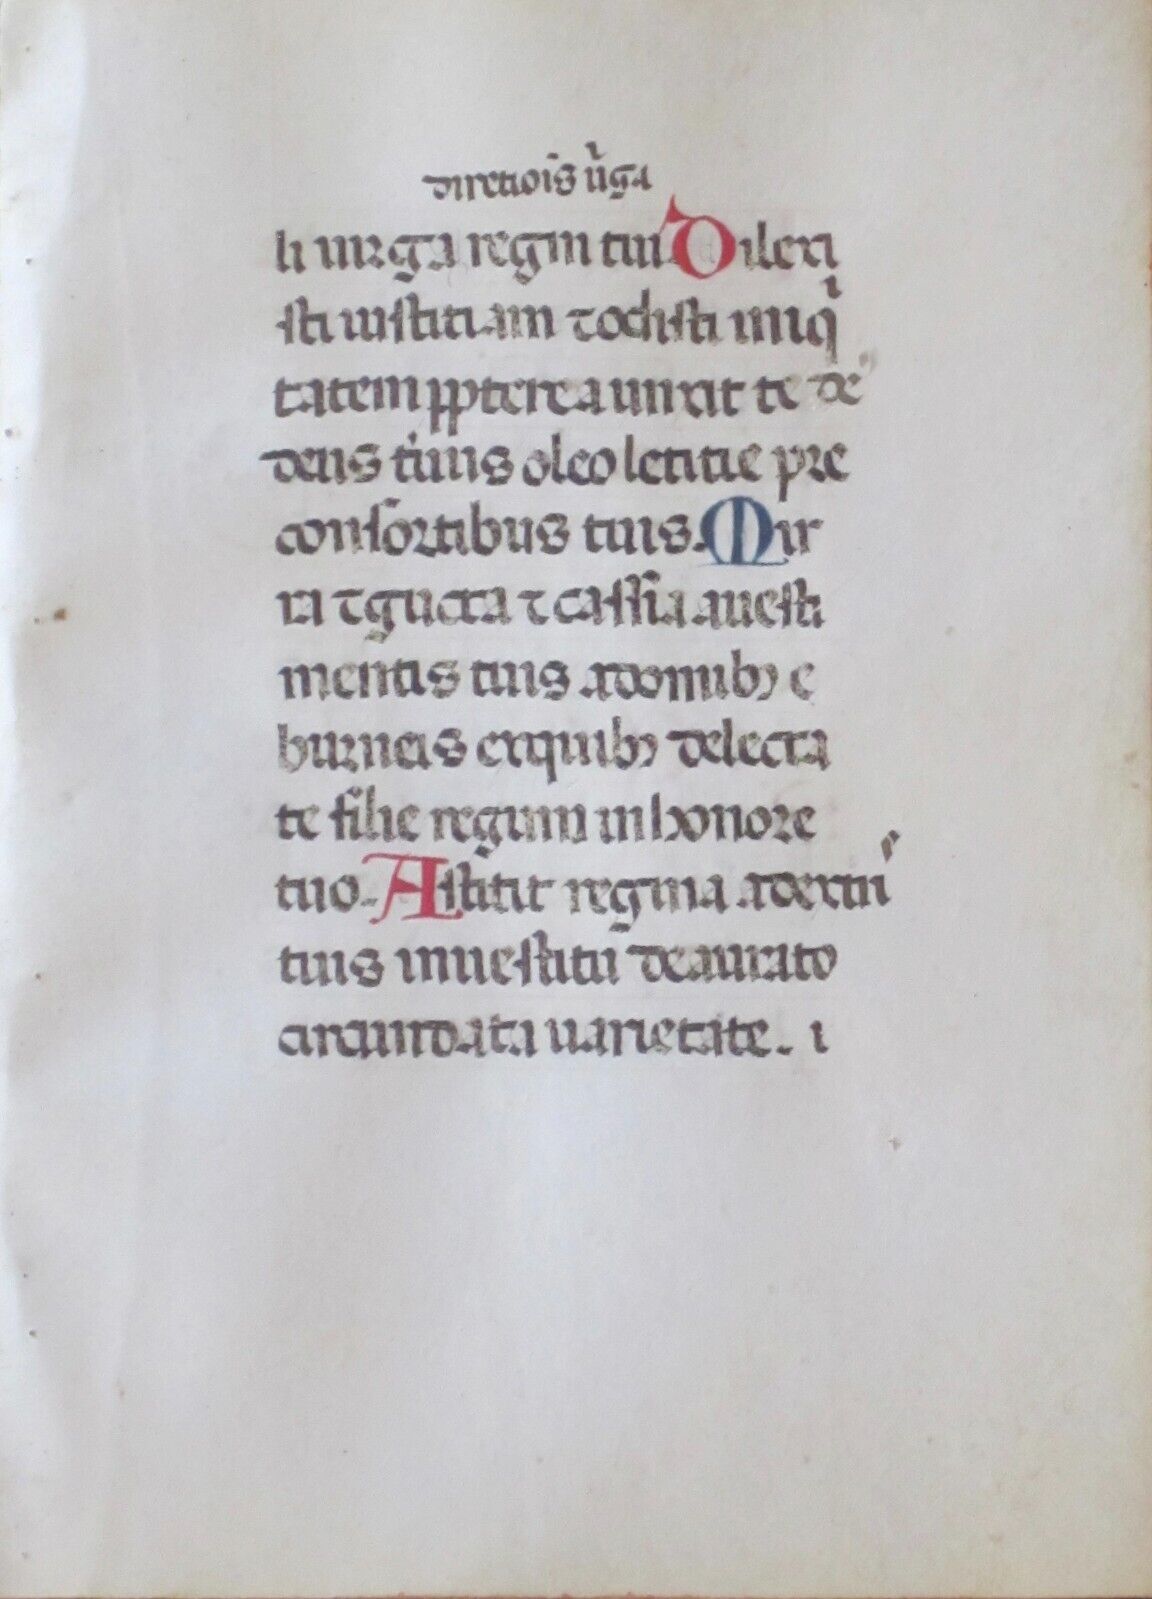 diretiois v̄ga
li uirga regni tui Dilexi
sti iustitiam ⁊ odisti iniq̇
tatem ꝓpterea unxit te de
deus tuus oleo letitie pre
consortibus tuis. Mir
ra ⁊ gucta ⁊ cassia auesti
mentis tuis adomibꝫ e
burneis exquibꝫ delecta
te filie regum inhonore
tuo. Astitit regina adextrı̄
tuis inuestitu deaurato
circumdata uarietate. i